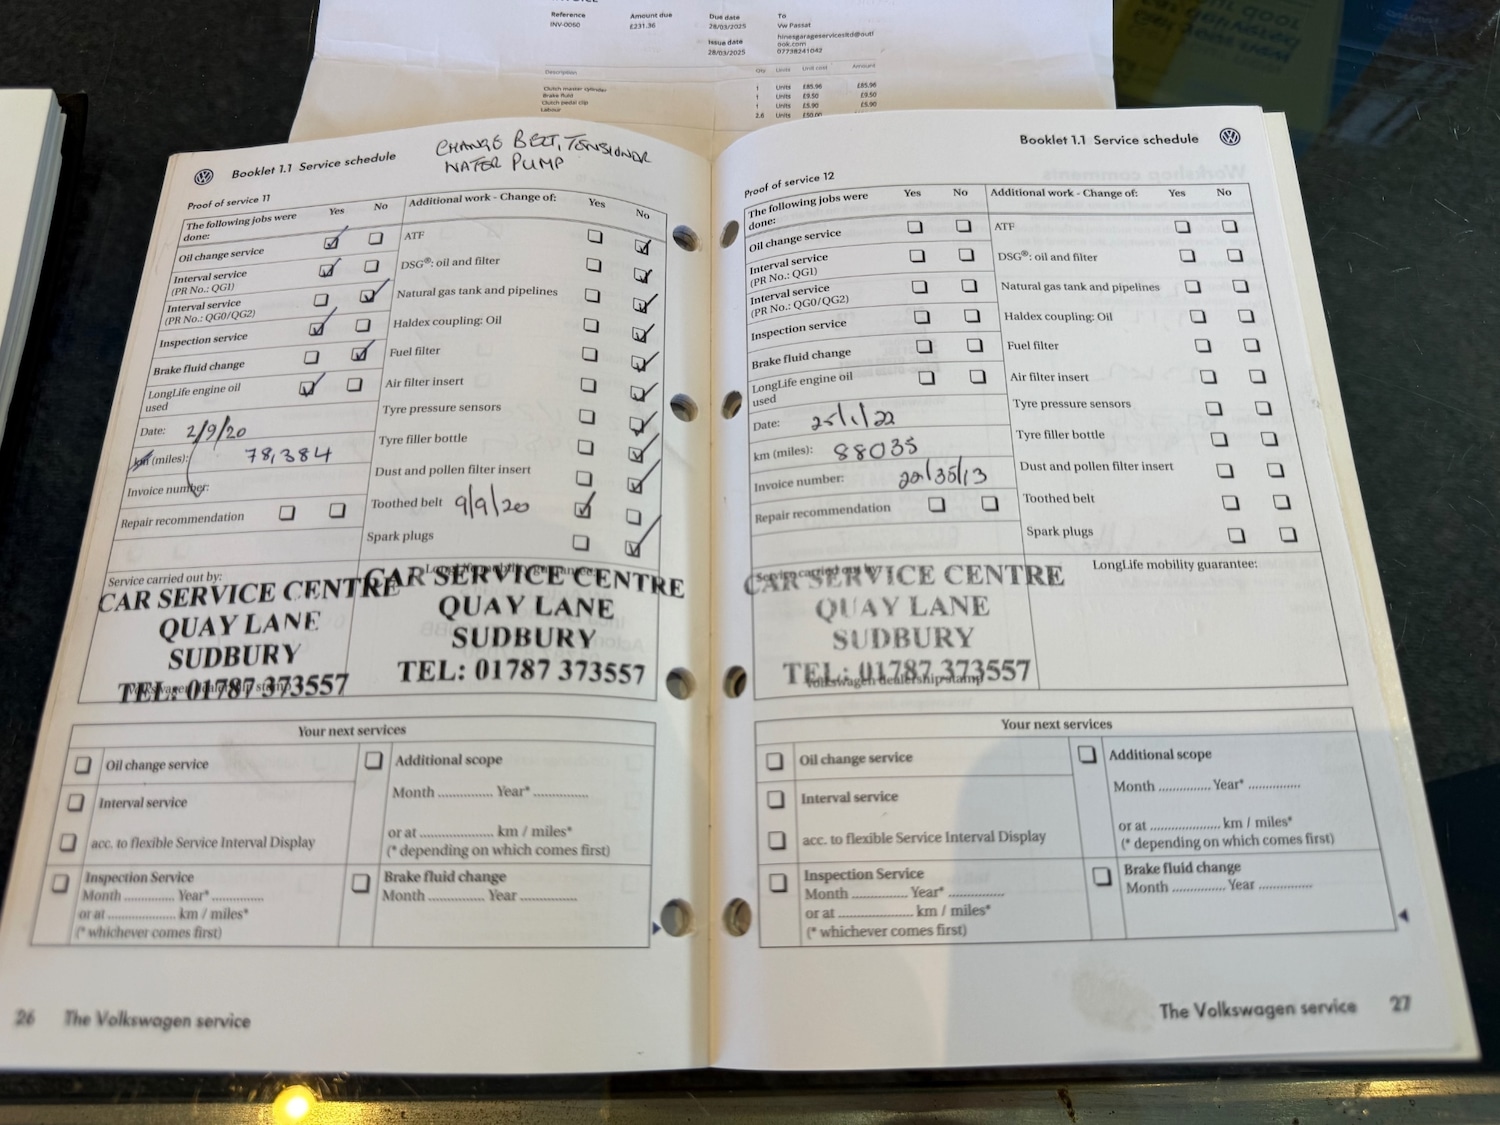 Reference
Amount due
Due date
To
INV-0050
£231.36
28/03/2025
Vw Passat
Issue date
hinesgarageservicesltd@outl
ook.com
28/03/2025
07738241042
Description
Qty
Units
Unit cost
Amount
Clutch master cylinder
1
Units
£85.96
£85.96
Brake fluid
1
Units
£9.50
£9.50
Clutch pedal clip
1
Units
£5.90
£5.90
Labour
2.6
Units
£50.00
Booklet 1.1 Service schedule
CHANGE BELT, TENSIONOR
WATER PUMP
Proof of service 11
The following jobs were
done:
Yes
No
Additional work - Change of:
Yes
No
Oil change service
ATF
Interval service
(PR No.: QG1)
DSG®: oil and filter
Interval service
(PR No.: QG0/QG2)
Natural gas tank and pipelines
Inspection service
Haldex coupling: Oil
Brake fluid change
Fuel filter
LongLife engine oil
used
Air filter insert
Date: 2/9/20
Tyre pressure sensors
km (miles): 78,384
Tyre filler bottle
Invoice number:
Dust and pollen filter insert
Repair recommendation
Toothed belt 9/9/20
Spark plugs
Service carried out by:
CAR SERVICE CENTRE
QUAY LANE
SUDBURY
TEL: 01787 373557
CAR SERVICE CENTRE
QUAY LANE
SUDBURY
TEL: 01787 373557
Your next services
Oil change service
Additional scope
Interval service
Month ............. Year* .............
acc. to flexible Service Interval Display
or at .................. km / miles*
(* depending on which comes first)
Inspection Service
Month ............ Year* .............
or at ................ km / miles*
(* whichever comes first)
Brake fluid change
Month ............. Year .............
26 The Volkswagen service
Booklet 1.1 Service schedule
Proof of service 12
The following jobs were
done:
Yes
No
Additional work - Change of:
Yes
No
Oil change service
ATF
Interval service
(PR No.: QG1)
DSG®: oil and filter
Interval service
(PR No.: QG0/QG2)
Natural gas tank and pipelines
Inspection service
Haldex coupling: Oil
Brake fluid change
Fuel filter
LongLife engine oil
used
Air filter insert
Date: 25/1/22
Tyre pressure sensors
km (miles): 88035
Tyre filler bottle
Invoice number: 22/35/13
Dust and pollen filter insert
Repair recommendation
Toothed belt
Spark plugs
Service carried out by:
LongLife mobility guarantee:
CAR SERVICE CENTRE
QUAY LANE
SUDBURY
TEL: 01787 373557
Volkswagen dealership stamp
Your next services
Oil change service
Additional scope
Interval service
Month ............. Year* .............
acc. to flexible Service Interval Display
or at .................. km / miles*
(* depending on which comes first)
Inspection Service
Month ............. Year* .............
or at .................. km / miles*
(* whichever comes first)
Brake fluid change
Month ............. Year .............
The Volkswagen service 27